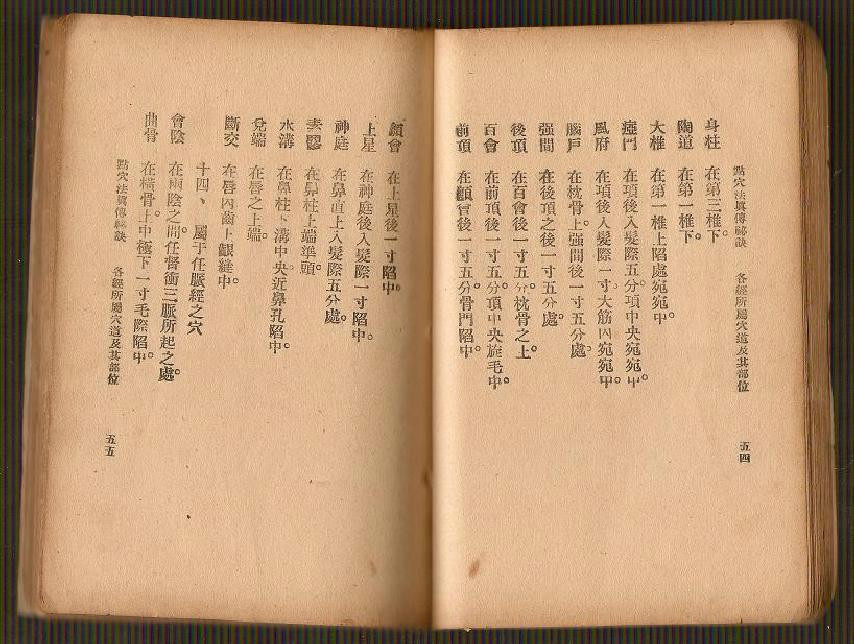 點穴法眞傳秘訣　各經所屬穴道及其部位　五四
身柱　在第三椎下。
陶道　在第一椎下。
大椎　在第一椎上陷處宛宛中。
瘂門　在項後入髮際五分。項中央宛宛中。
風府　在項後入髮際一寸大筋內宛宛中。
腦戶　在枕骨上。强間後一寸五分處。
强間　在後頂之後一寸五分處。
後頂　在百會後一寸五分。枕骨之上。
百會　在前頂後一寸五分。頂中央旋毛中。
前頂　在顖會後一寸五分。骨門陷中。
顖會　在上星後一寸陷中。
上星　在神庭後入髮際一寸陷中。
神庭　在鼻直上入髮際五分處。
素髎　在鼻柱上端準頭。
水溝　在鼻柱下溝中央。近鼻孔陷中。
兌端　在唇之上端。
斷交　在唇內齒上齦縫中。
十四、屬于任脈經之穴
會陰　在兩陰之間。任督衝三脈所起之處。
曲骨　在橫骨上。中極下一寸毛際陷中。
點穴法眞傳秘訣　各經所屬穴道及其部位　五五